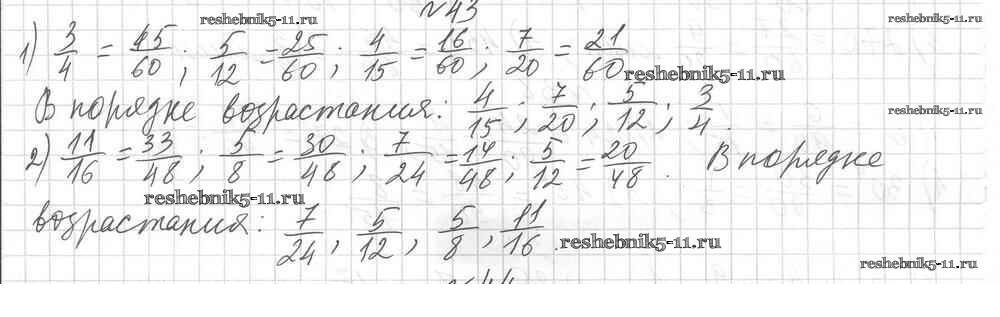 №43
reshebnik5-11.ru
reshebnik5-11.ru
1) 3/4 = 45/60; 5/12 = 25/60; 4/15 = 16/60; 7/20 = 21/60
reshebnik5-11.ru
В порядке возрастания: 4/15; 7/20; 5/12; 3/4.
reshebnik5-11.ru
2) 11/16 = 33/48; 5/8 = 30/48; 7/24 = 14/48; 5/12 = 20/48. В порядке
reshebnik5-11.ru
возрастания: 7/24, 5/12, 5/8, 11/16.
reshebnik5-11.ru
reshebnik5-11.ru